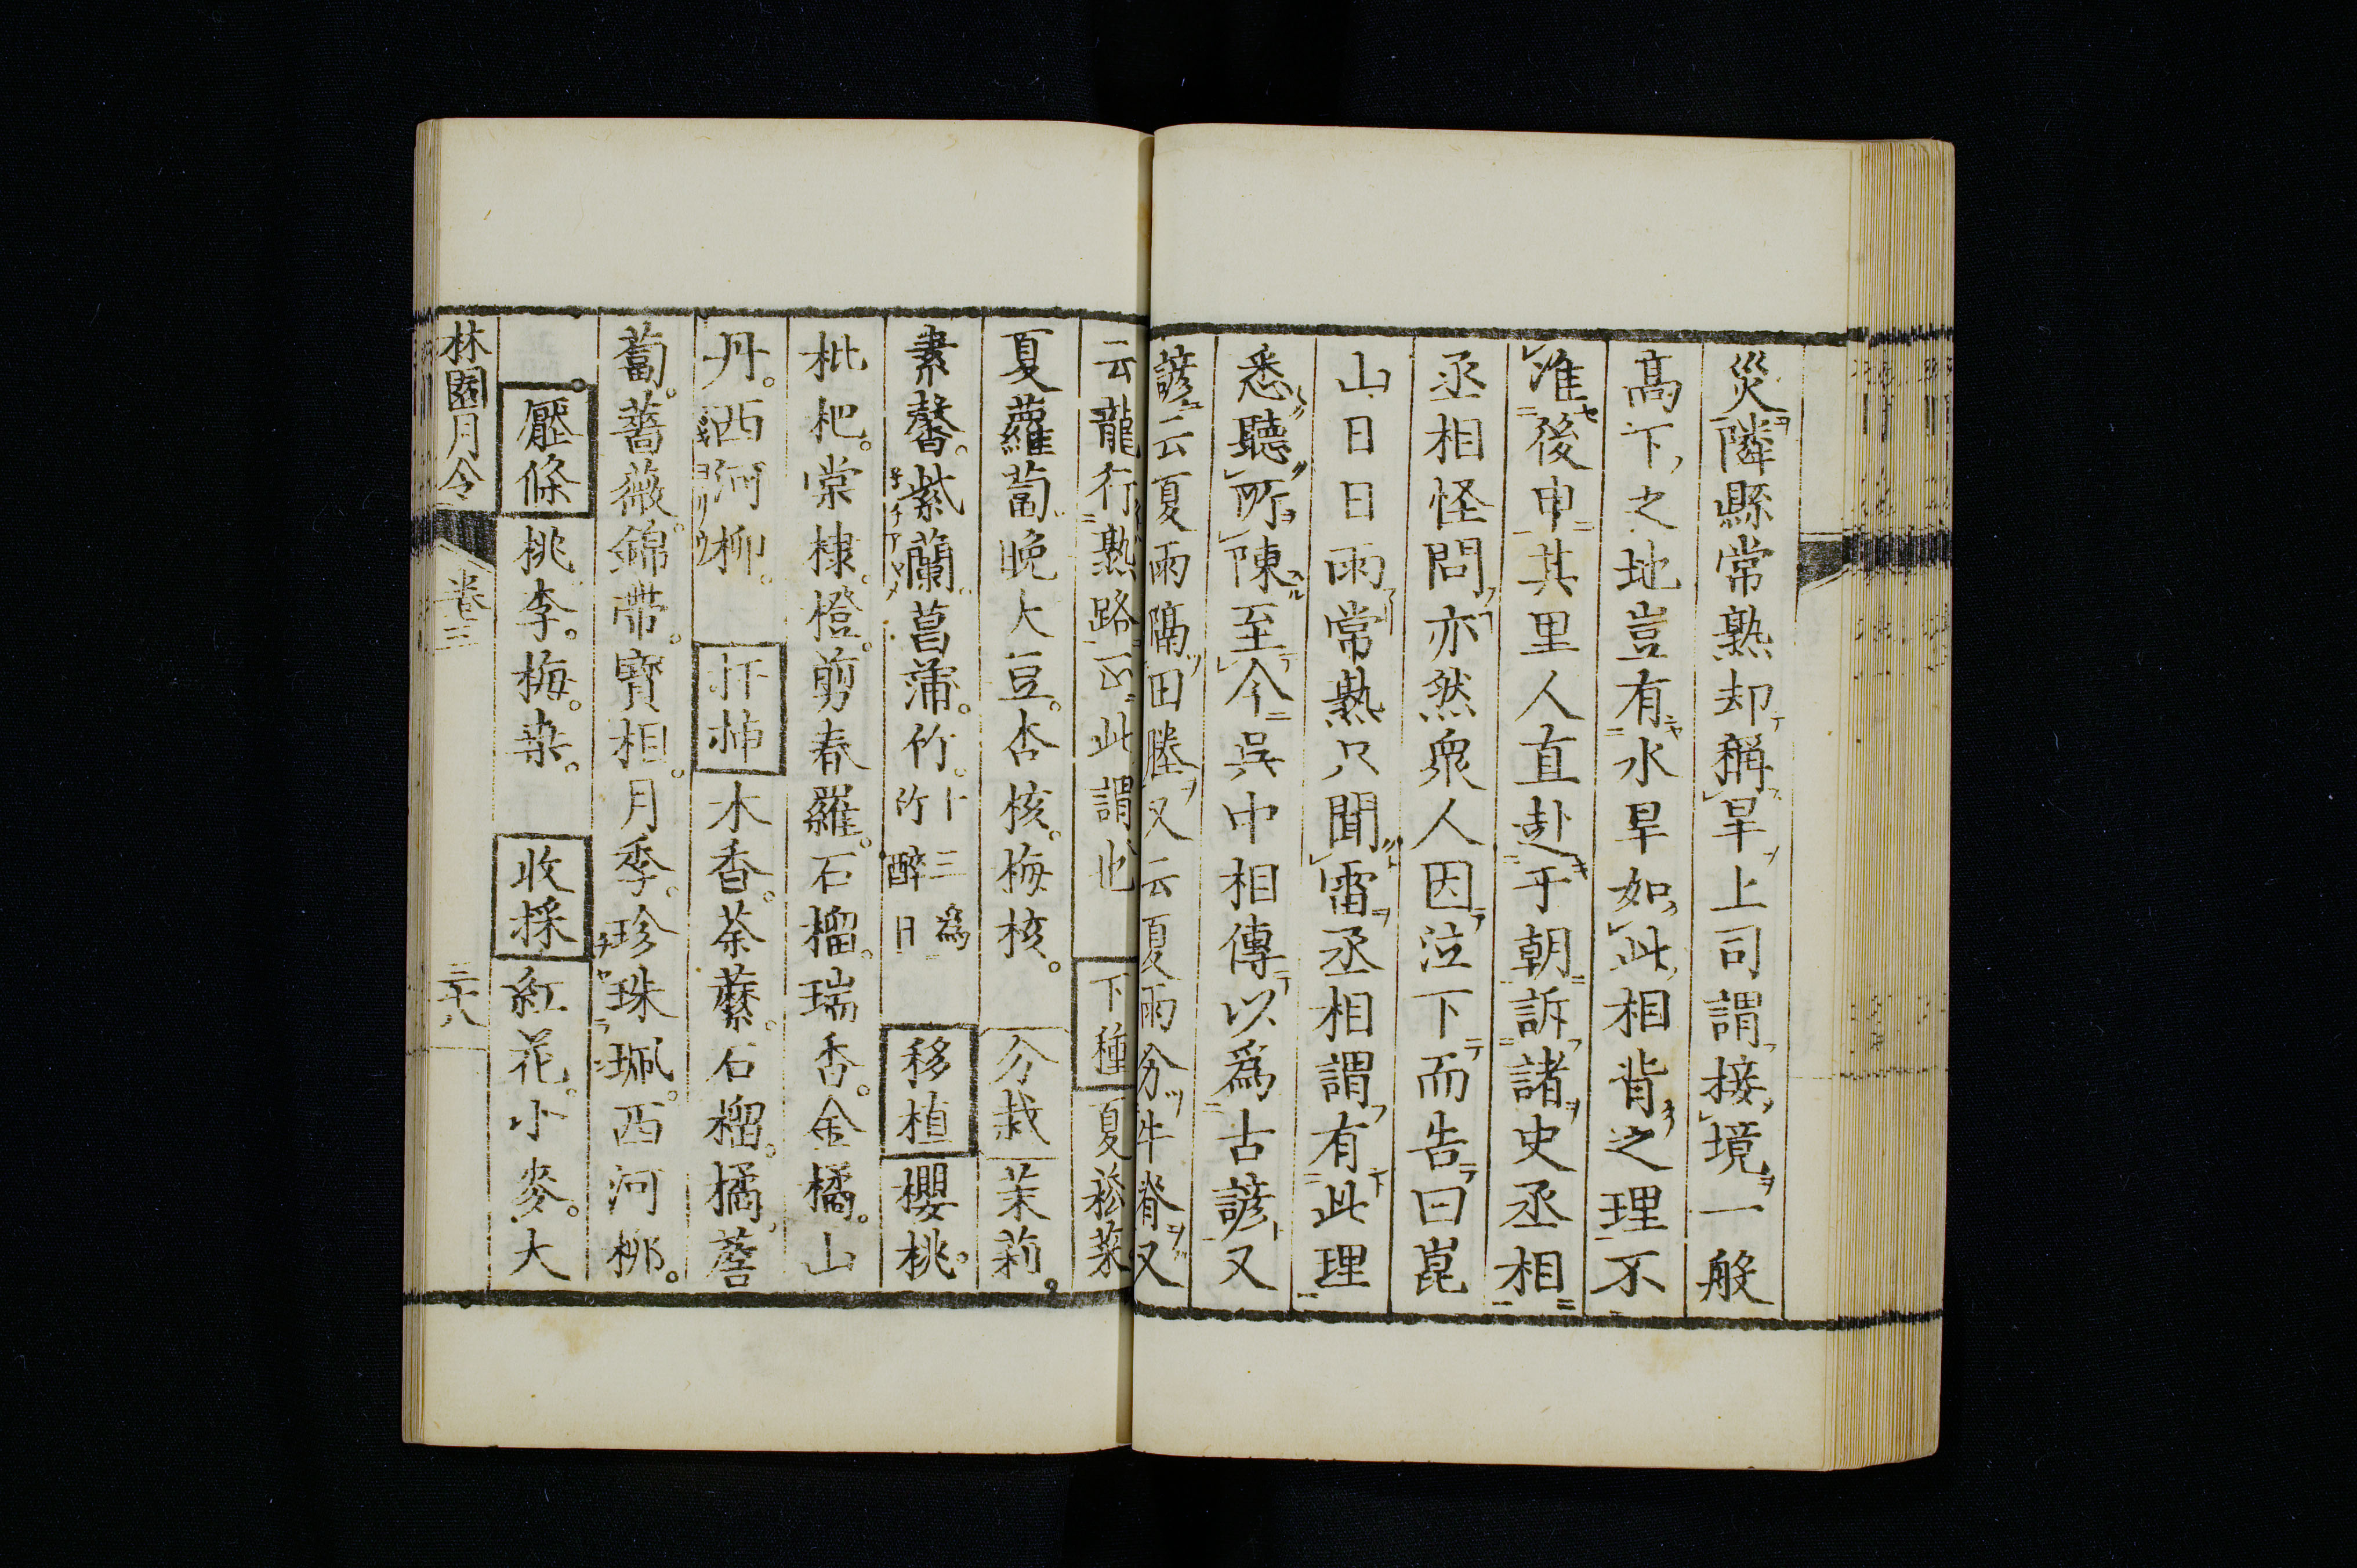 災隣縣常熟却稱旱上司謂接境一般
高下之地豈有水旱如此相背之理不
准後申其里人直赴于朝訴諸史丞相
丞相怪問亦然衆人因泣下而告曰崑
山日日雨常熟只聞雷丞相謂有此理
悉聽所陳至今呉中相傳以爲古諺又
諺云夏雨隔田塍又云夏雨分牛脊又
云龍行熟路正此謂也 下種 夏菘菜
夏蘿蔔晚大豆。杏核。梅核。 分栽 茉莉。
素馨。紫蘭菖蒲。竹。十三爲竹醉日 移植 櫻桃。
枇杷。棠棣。橙。剪春羅。石榴。瑞香。金橘。山
丹。西河柳。 扦挿 木香。荼蘼。石榴。橘。薝
蔔。薔薇。錦帶。寳相。月季。珍珠珮。西河柳。
壓條 桃李。梅。桒。 收採 紅花。小麥。大
林園月令 卷三 三十八